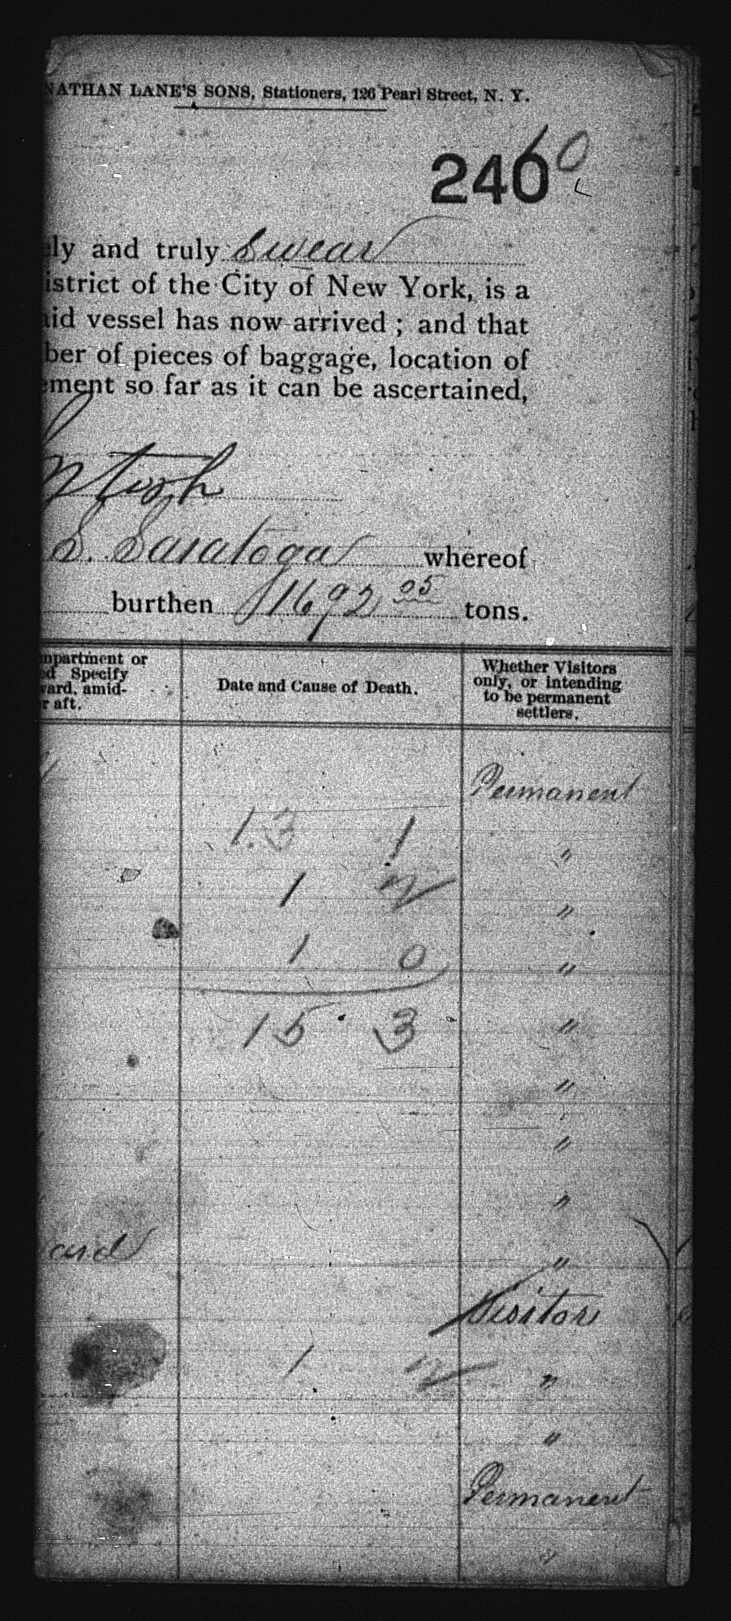 NATHAN LANE'S SONS, Stationers, 126 Pearl Street, N. Y.
240
60
ly and truly Swear
istrict of the City of New York, is a
aid vessel has now arrived ; and that
ber of pieces of baggage, location of
ement so far as it can be ascertained,
ntosh
S. Saratoga whereof
burthen 1692 95 tons.
mpartment or
ed Specify
ward, amid-
r aft.
Date and Cause of Death.
Whether Visitors
only, or intending
to be permanent
settlers.
Permanent
13 1 "
1 2 "
1 0 "
15 3 "
"
"
"
ard "
Visitors
1 2 "
"
Permanent
"